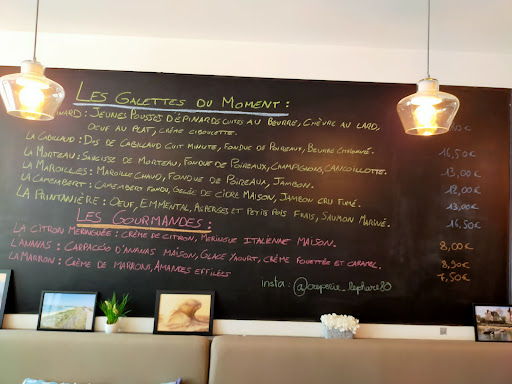 Les Galettes du Moment :
: Jeunes Pousses d'épinards cuites au Beurre, Chèvre au lard,
oeuf au plat, crème ciboulette.
La Cabillaud : Dos de Cabillaud cuit minute, Fondue de Poireaux, Beurre citronné. 16,50€
La Morteau : Saucisse de Morteau, Fondue de Poireaux, Champignons, Cancoillotte. 13,00€
La Maroilles : Maroille Chaud, Fondue de Poireaux, Jambon. 12,00€
La Camembert : Camembert fondu, Gelée de Cidre Maison, Jambon cru fumé. 13,00€
La Printanière : Oeuf, Emmental, Asperges et Petits Pois Frais, Saumon Mariné. 16,50€
Les Gourmandes :
La Citron Meringuée : crème de citron, Meringue Italienne Maison. 8,00€
L'Ananas : Carpaccio d'Ananas Maison, Glace Yaourt, crème fouettée et caramel. 8,90€
La Marron : Crème de Marrons, Amandes effilées 7,50€
insta : @creperie_lephare80